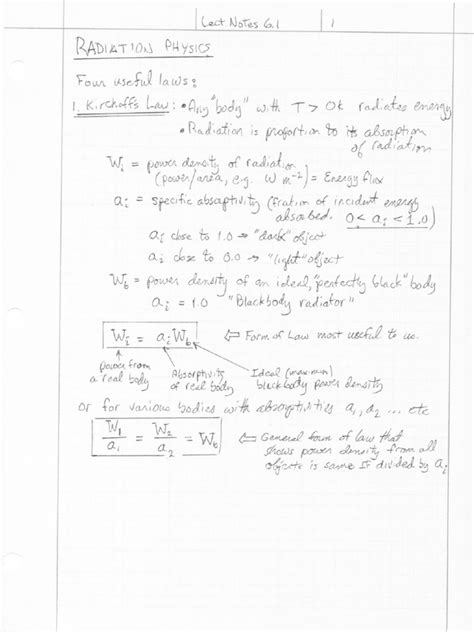 Lect Notes 6.1 1
RADIATION PHYSICS
Four useful laws:
1. Kirchoff's Law: • Any "body" with T > 0k radiates energy
• Radiation is proportion to its absorption
of radiation
Wi = power density of radiation
(power/area, e.g. W m⁻²) = Energy flux
ai = specific absorptivity (fration of incident energy
absorbed. 0 < ai < 1.0)
ai close to 1.0 → "dark" object
ai close to 0.0 → "light" object
Wb = power density of an ideal, "perfectly black" body
ai = 1.0 "Blackbody radiator"
Wi = ai Wb ⇐ Form of Law most useful to us.
power from a real body
Absorptivity of real body
Ideal (maximum) blackbody power density
Or for various bodies with absorptivities a1, a2 ... etc
W1/a1 = W2/a2 = Wb ⇐ General form of law that
shows power density from all
objects is same IF divided by ai